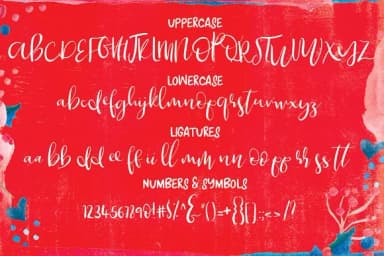 UPPERCASE
ABCDEFGHIJKLMNOPQRSTUVWXYZ
LOWERCASE
abcdefghijklmnopqrstuvwxyz
LIGATURES
aa bb dd ee ff ii ll mm nn oo pp rr ss tt
NUMBERS & SYMBOLS
1234567890!#$%^&*()=+{}[]:;<>/?